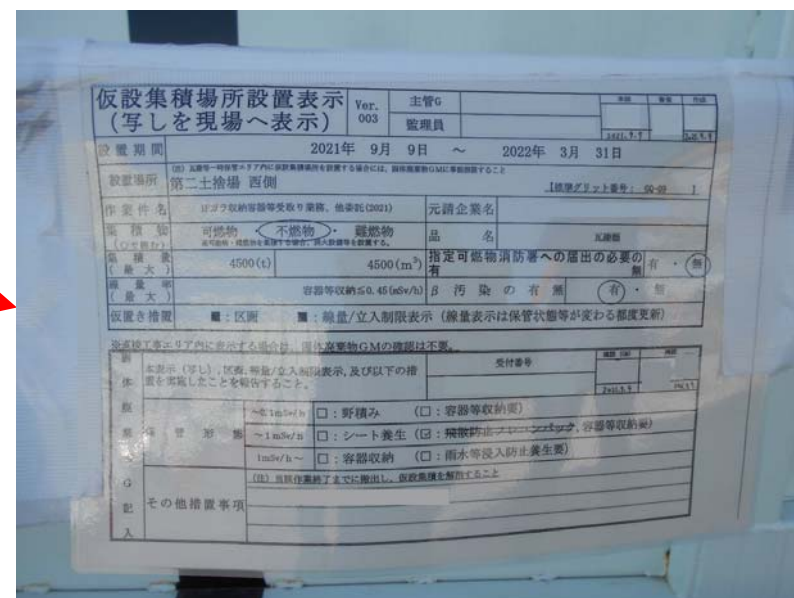 仮設集積場所設置表示
(写しを現場へ表示)
Ver.
003
主管G
監理員
承認 審査 作成
2021.9.9
設置期間 2021年 9月 9日 ～ 2022年 3月 31日
設置場所
第二土捨場 西側
【標準グリット番号:
作業件名
ガラ収納容器等受取り業務、他委託(2021)
元請企業名
集積物
(ひで囲む)
可燃物 ・ 不燃物 ・ 難燃物
品名
瓦礫類
集積量
(最大)
4500(t)
4500(m³)
指定可燃物消防署への届出の必要の有無
有 ・ 無
線量率
(最大)
容器等収納≦0.45(mSv/h)
β汚染の有無
有 ・ 無
仮置き措置
■:区画 ■:線量/立入制限表示 (線量表示は保管状態等が変わる都度更新)
※直接工事エリア内に表示する場合は、固体廃棄物GMの確認は不要。
固体廃棄
G記入
本表示(写し),区画,線量/立入制限表示,及び以下の措置を実施したことを報告すること。
受付番号
保管形態
～0.1mSv/h
□:野積み (□:容器等収納要)
～1mSv/h
□:シート養生 (☑:飛散防止フレコンパック,容器等収納要)
1mSv/h～
□:容器収納 (□:雨水等浸入防止養生要)
その他措置事項
(注) 当該作業終了までに搬出し、仮設集積を解消すること